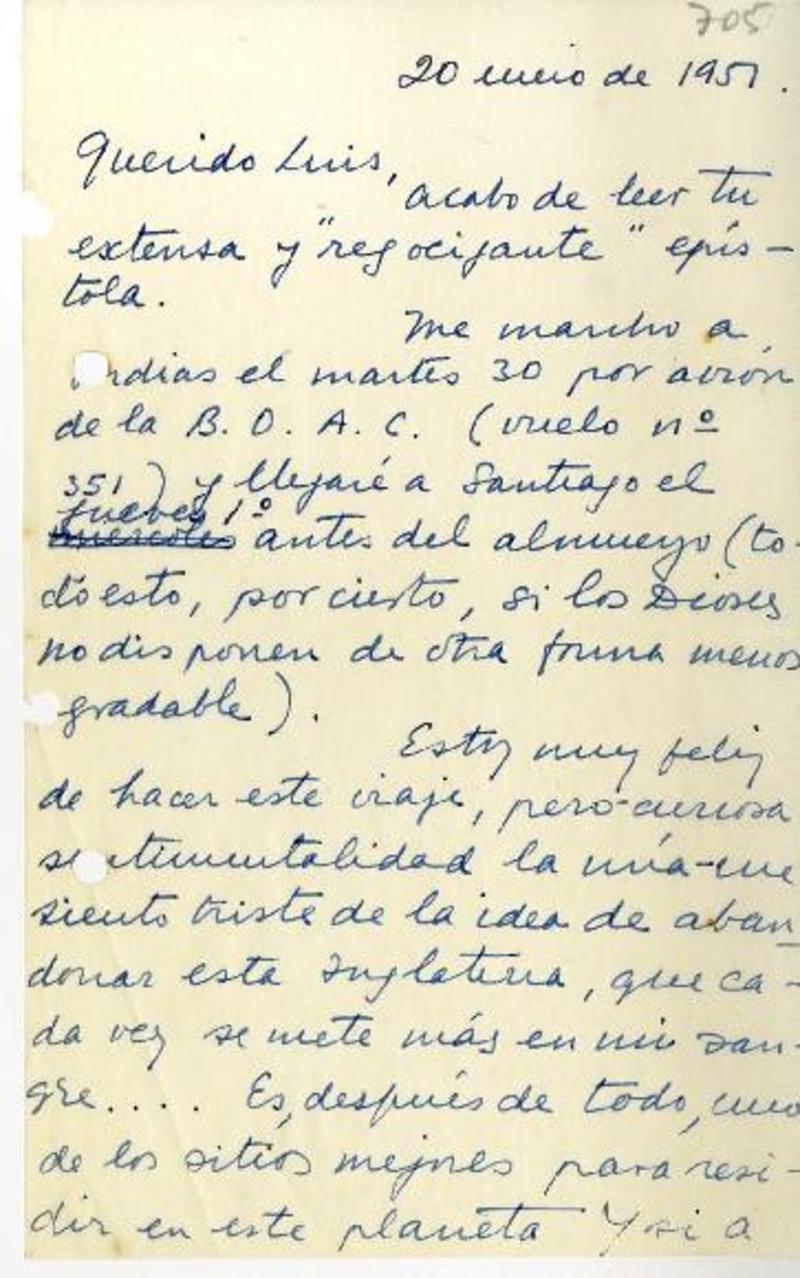 705
20 enero de 1951.
Querido Luis,
acabo de leer tu
extensa y "regocijante" epís-
tola.
Me marcho a
Indias el martes 30 por avión
de la B. O. A. C. (vuelo nº
351) y llegaré a Santiago el
jueves 1º
miércoles antes del almuerzo (to-
do esto, por cierto, si los Dioses
no disponen de otra forma menos
gradable).
Estoy muy feliz
de hacer este viaje, pero-curiosa
sentimentalidad la mía-me
siento triste de la idea de aban-
donar esta Inglaterra, que ca-
da vez se mete más en mi san-
gre.... Es, después de todo, uno
de los sitios mejores para resi-
dir en este planeta Y si a